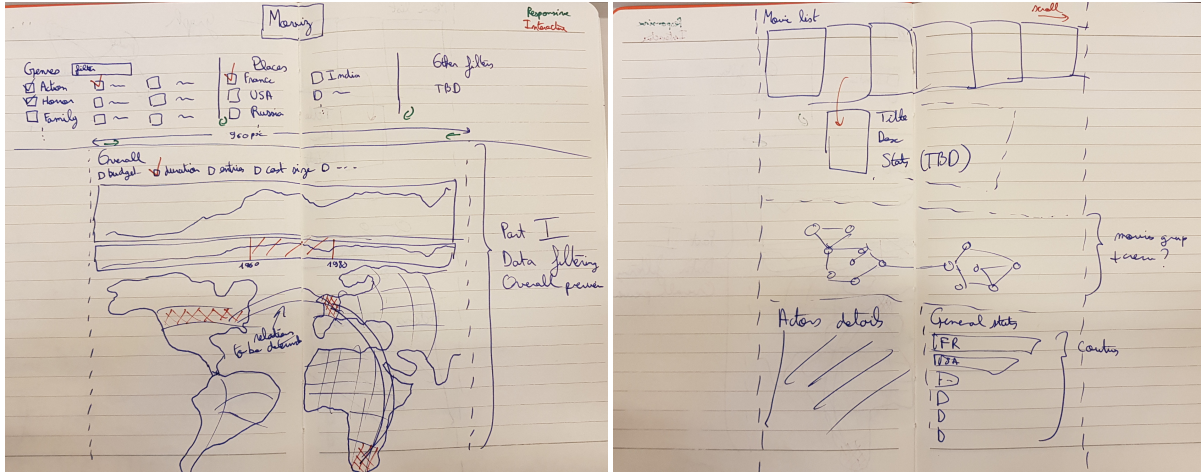 Moviz
Responsive
Interactive
Genres filter
Action
Horror
Family
Places
France
USA
Russia
India
Other filters
TBD
960 px
Overall
budget duration entries cast size ...
1960 1980
relations
to be determined
Part I
Data filtering
Overall preview
Movie list
scroll
Title
Desc
Stats (TBD)
movies group
+ crew ?
Actors details
General stats
FR
USA